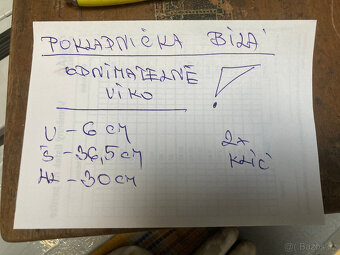 POKLADNIČKA BÍLÁ
ODNÍMATELNÉ
VÍKO
V - 6 CM
Š - 36,5 CM
HL - 30 CM
2x
KLÍČ